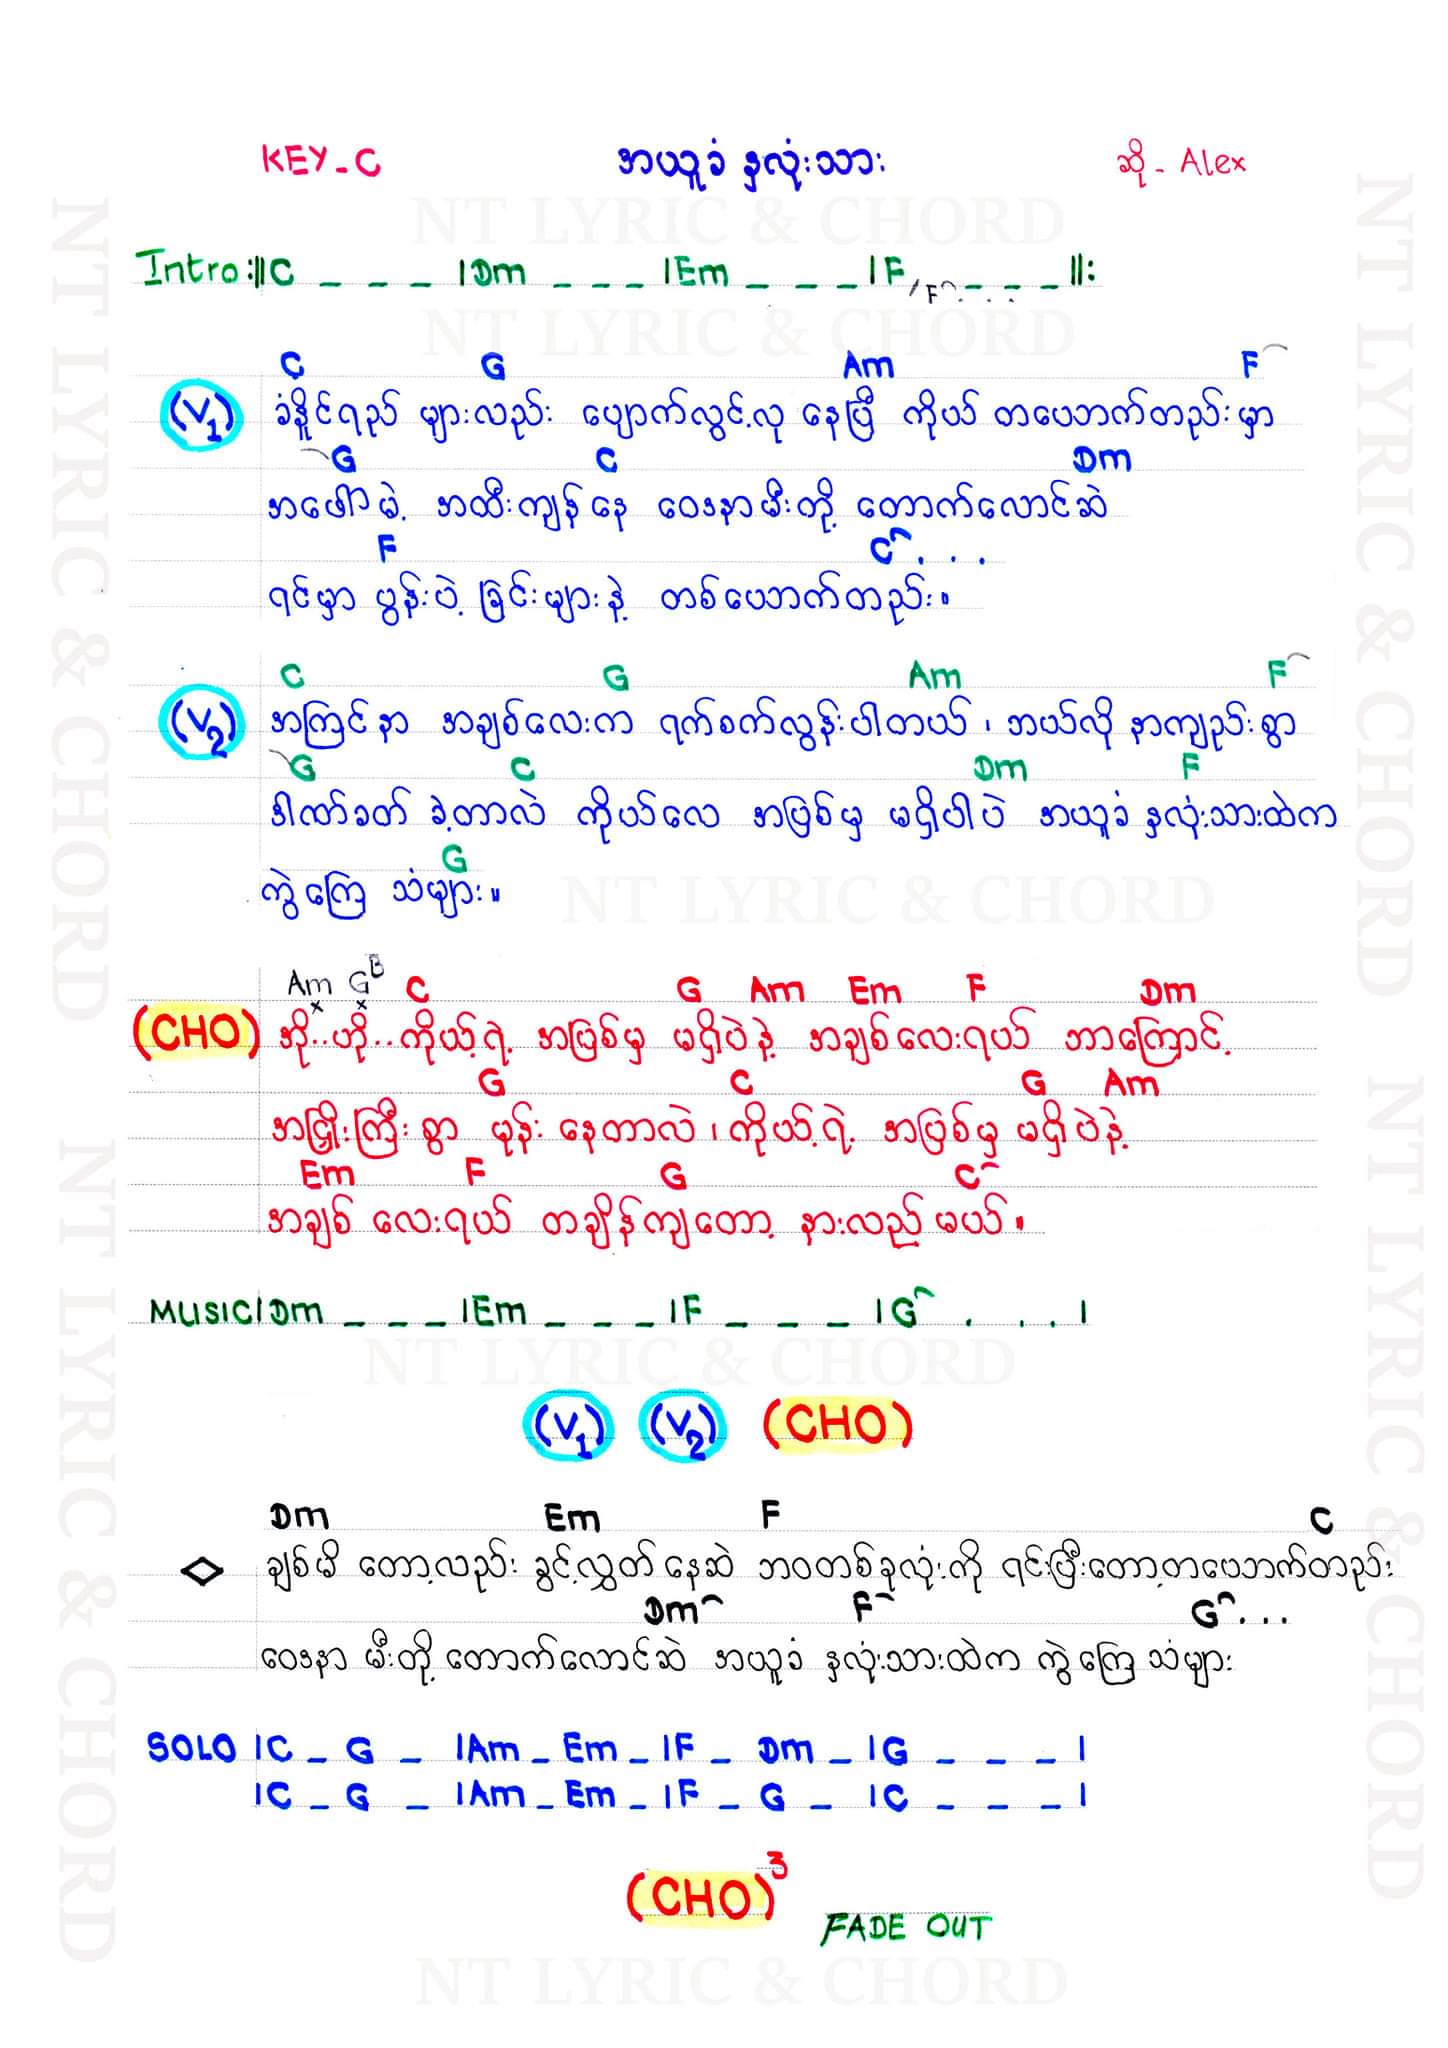 KEY - C အယူခံ နှလုံးသား ဆို - Alex
NT LYRIC & CHORD
Intro :||C _ _ _ |Dm _ _ _ |Em _ _ _ |F /F^... _ _ _ ||:
NT LYRIC & CHORD
C G Am F
(V1) ခံနိူင်ရည် များလည်း ပျောက်လွင့်လု နေပြီ ကိုယ် တယောက်တည်းမှာ
G C Dm
အဖေါ်မဲ့ အထီးကျန်နေ ဝေဒနာမီးတို့ တောက်လောင်ဆဲ
F C^...
ရင်မှာ ပွန်းပဲ့ခြင်းများနဲ့ တစ်ယောက်တည်း။
C G Am F
(V2) အကြင်နာ အချစ်လေးက ရက်စက်လွန်းပါတယ်၊ ဘယ်လို နာကျည်းစွာ
G C Dm F
ဒါဏ်ခတ် ခဲ့တာလဲ ကိုယ်လေ အပြစ်မှ မရှိပါပဲ အယူခံ နှလုံးသားထဲက
G
ကွဲကြေ သံများ။
NT LYRIC & CHORD
Am G^B C G Am Em F Dm
(CHO) အို..ဟို..ကိုယ့်ရဲ့ အပြစ်မှ မရှိပဲနဲ့ အချစ်လေးရယ် ဘာကြောင့်
G C G Am
အငြှိုးကြီးစွာ မုန်းနေတာလဲ၊ ကိုယ့်ရဲ့ အပြစ်မှ မရှိပဲနဲ့
Em F G C^
အချစ်လေးရယ် တချိန်ကျတော့ နားလည်မယ်။
MUSIC|Dm _ _ _ |Em _ _ _ |F _ _ _ |G^ . . . |
NT LYRIC & CHORD
(V1) (V2) (CHO)
Dm Em F C
ချစ်မိ တော့လည်း ခွင့်လွှတ်နေဆဲ ဘဝတစ်ခုလုံးကို ရင်းပြီးတော့တယောက်တည်း
Dm^ F^ G^...
ဝေဒနာ မီးတို့ တောက်လောင်ဆဲ အယူခံ နှလုံးသားထဲက ကွဲကြေ သံများ
SOLO |C _ G _ |Am _ Em _ |F _ Dm _ |G _ _ _ |
|C _ G _ |Am _ Em _ |F _ G _ |C _ _ _ |
(CHO)3
FADE OUT
NT LYRIC & CHORD
NT LYRIC & CHORD
NT LYRIC & CHORD
NT LYRIC & CHORD
NT LYRIC & CHORD